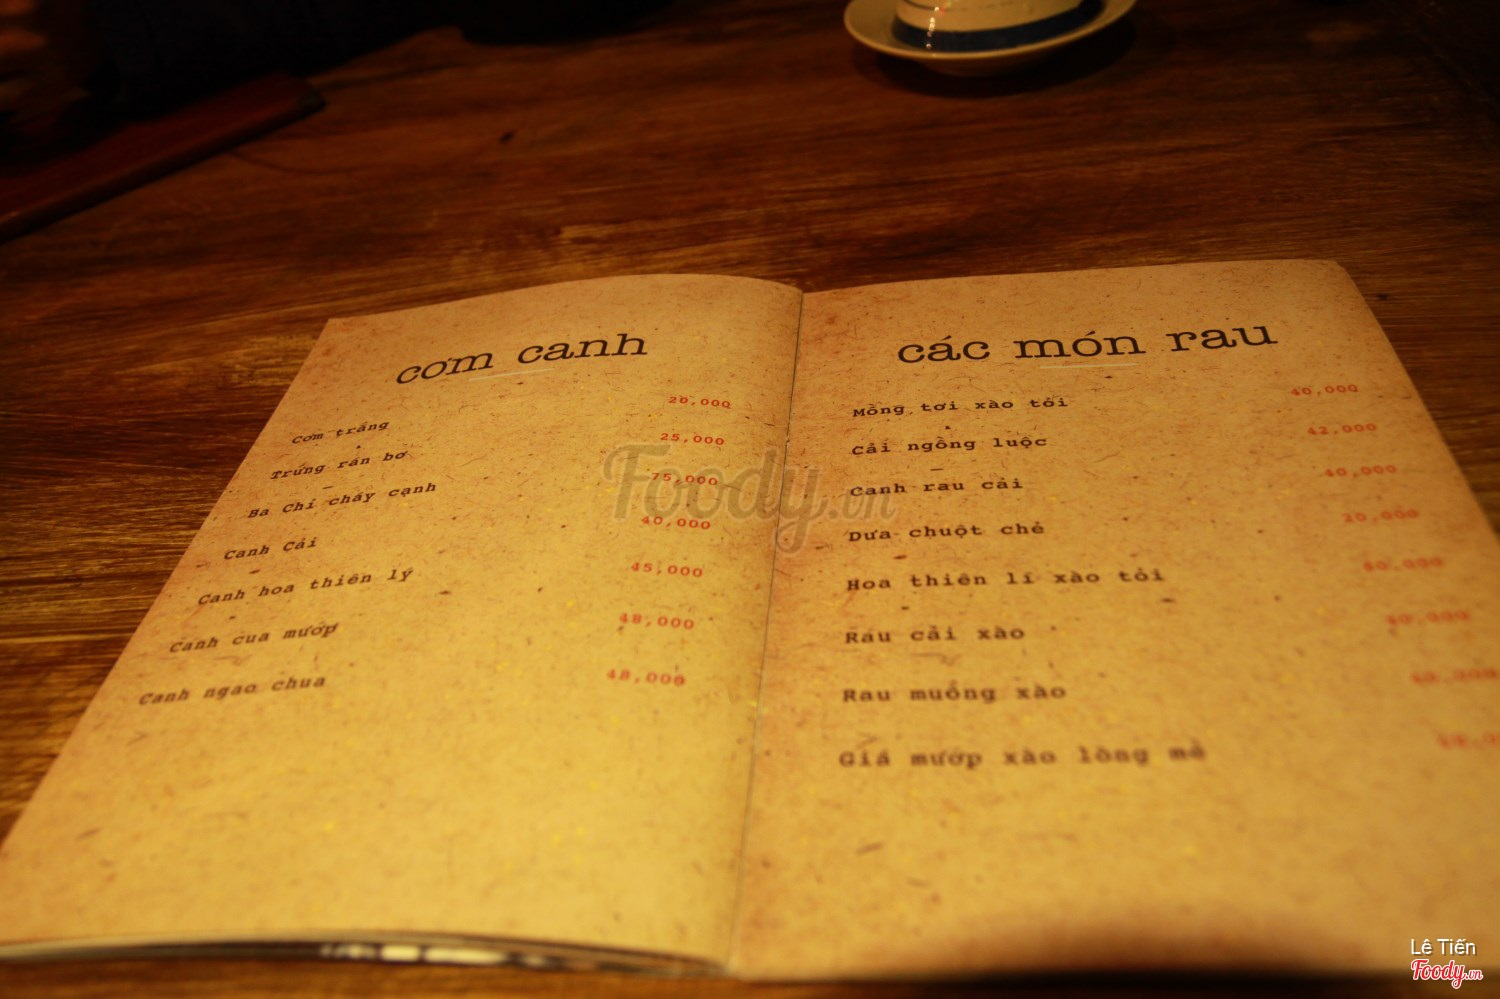 cơm canh
Cơm trắng 20,000
Trứng rán bơ 25,000
Ba Chỉ cháy cạnh 75,000
Canh Cải 40,000
Canh hoa thiên lý 45,000
Canh cua mướp 48,000
Canh ngao chua 48,000
các món rau
Mồng tơi xào tỏi 40,000
Cải ngồng luộc 42,000
Canh rau cải 40,000
Dưa chuột chẻ 20,000
Hoa thiên lí xào tỏi
Rau cải xào 40,000
Rau muống xào
Giá mướp xào lòng mề
Foody.vn
Lê Tiến
Foody.vn